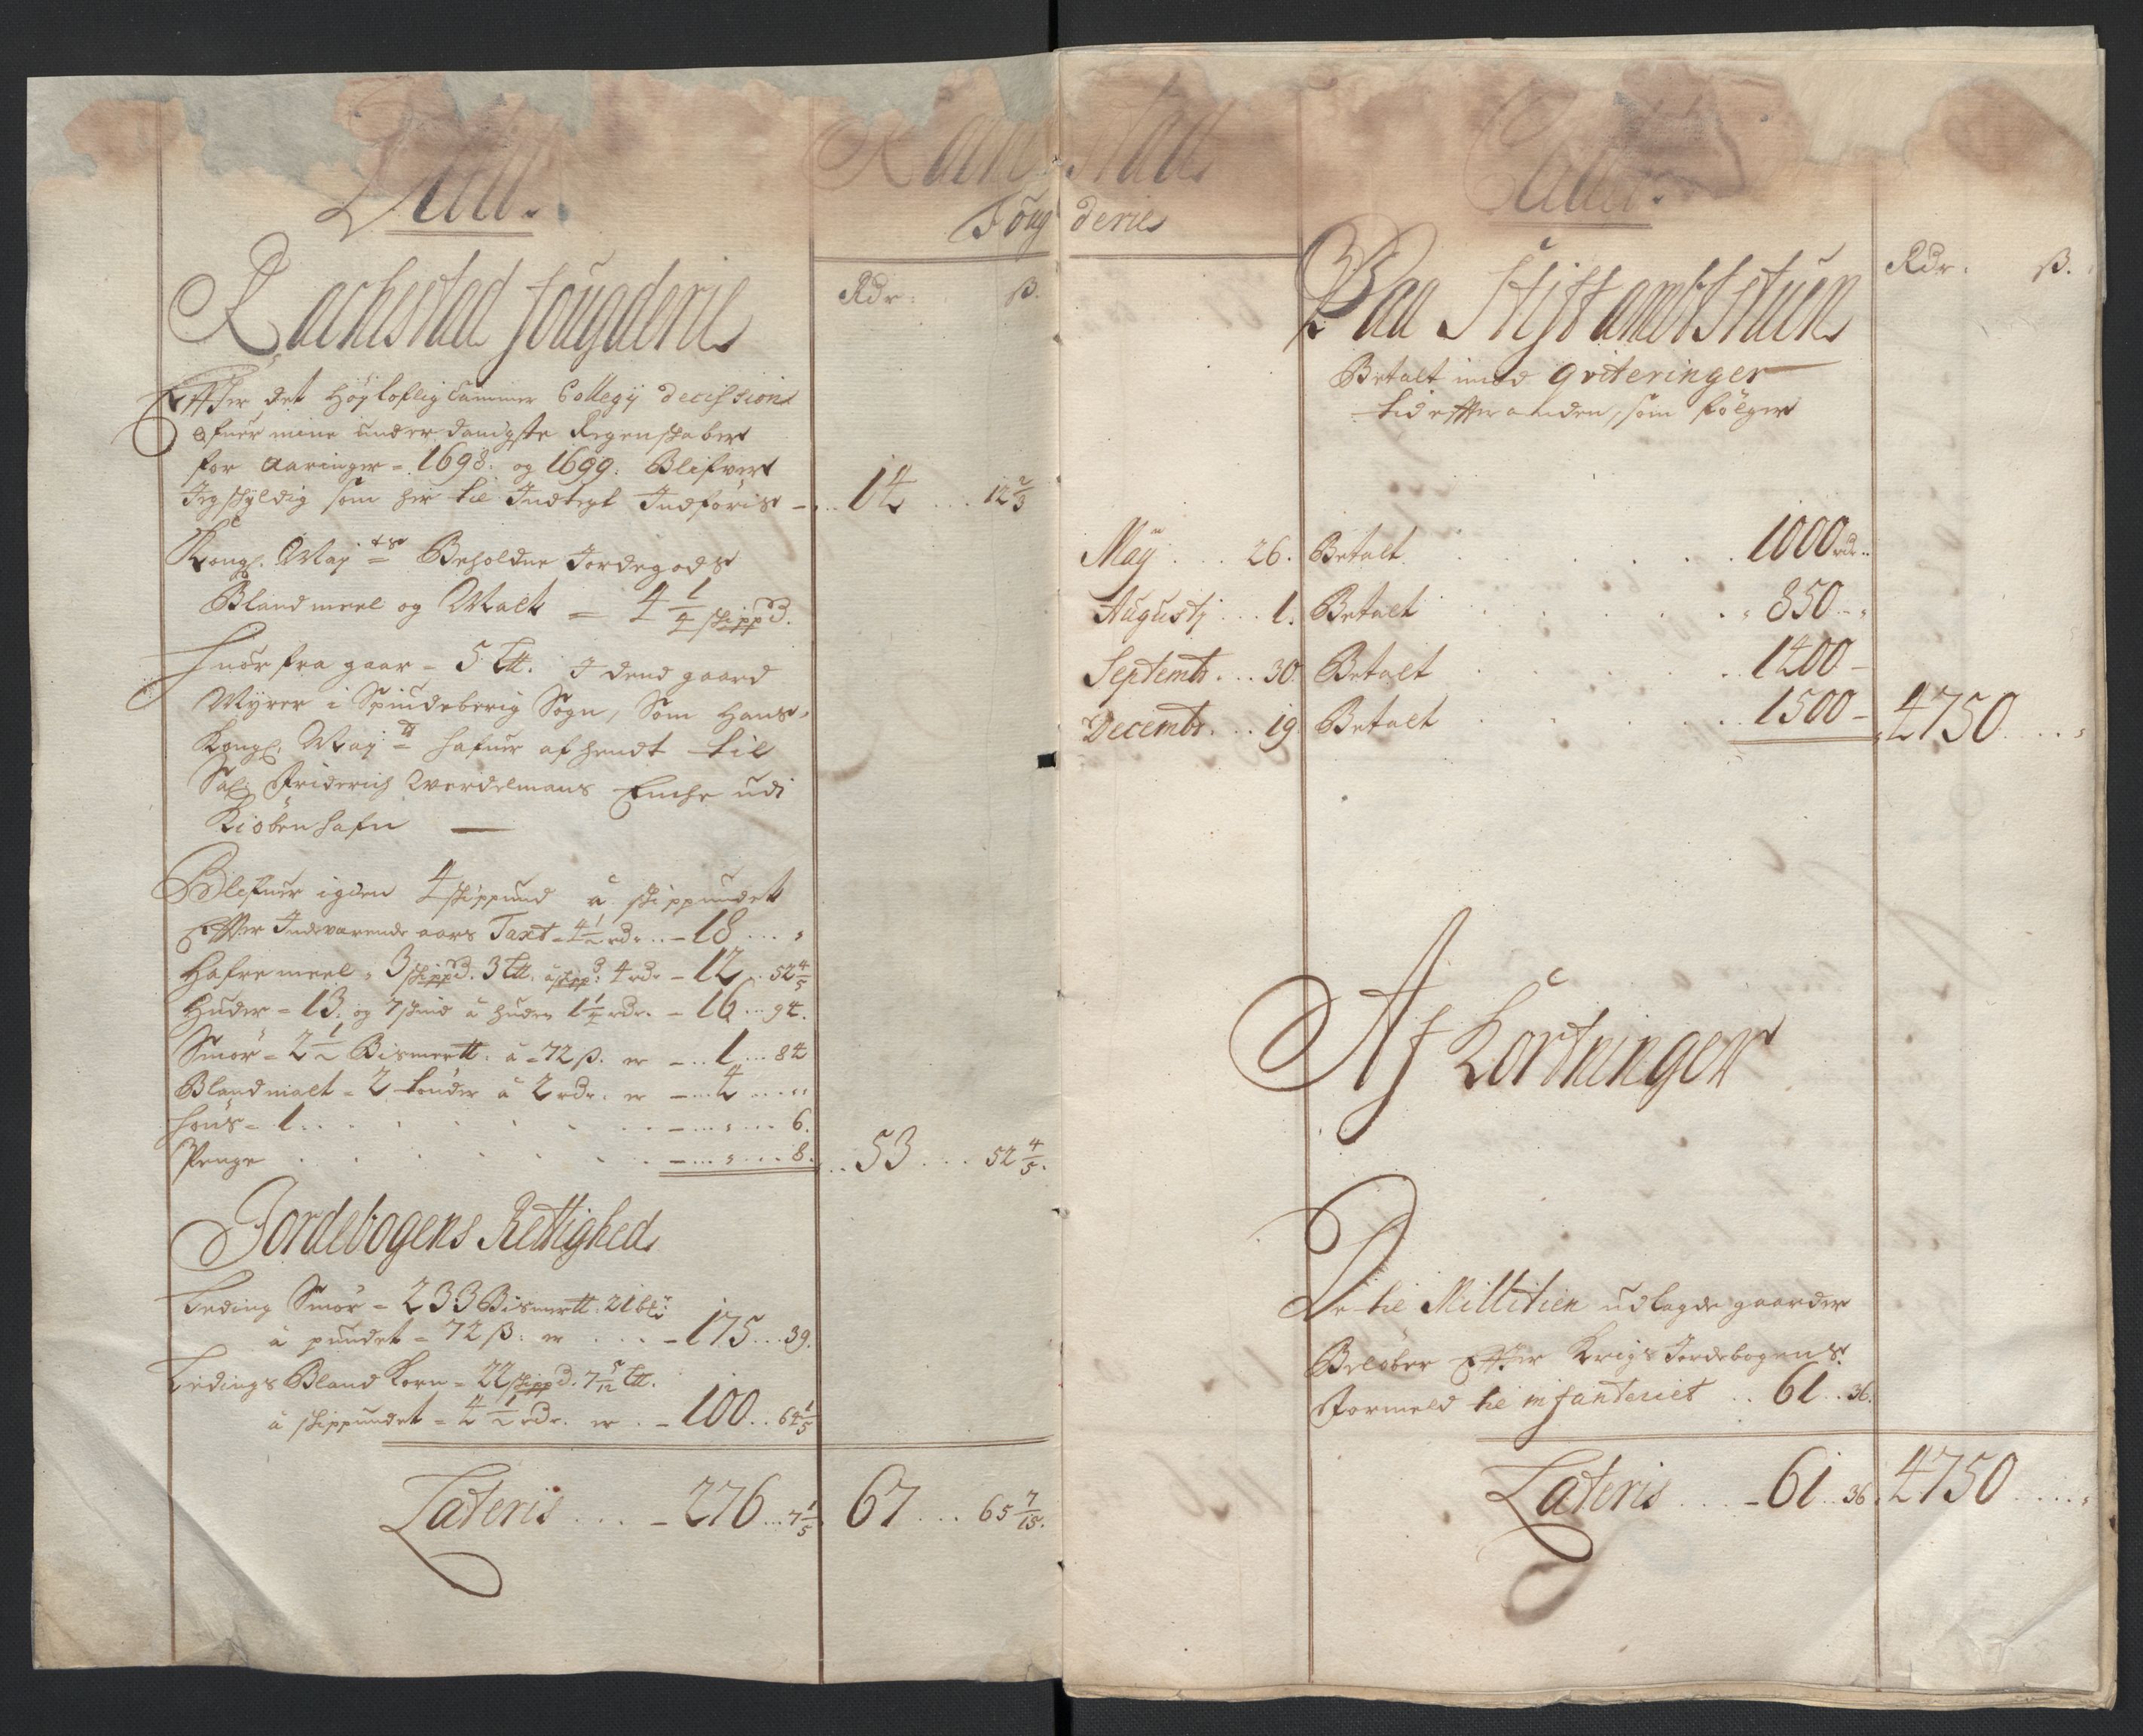 Debet.
Rachestad
Fougderie
Rdr: ß.
Rachestad fougderie
Effter det Høyloflig Cammer Collegy decission
ofuer mine underdanigste Regenskaber
for Aaringer = 1698. og 1699. Blifver
Jeg skyldig som her til Indtegt Indføris - ... 14 ... 12 2/3
Kongl. May ts Beholdne Jordegods
Bland meel og Malt = 4 1/4 skippd.
Huor fra gaar - 5 Lt. I dend gaard
Myrer i Spindeberig Sogn, Som Hans
Kongl. May tt hafuer afhendt til
Sal. Friderich Werdelmans Enche udi
Kiøbenhafn —
Blefuer igien 4 skippund a skippundet
Effter Indeværende aars Taxt - 4 1/2 rdr .. - 18 ... "
Hafre meel = 3 skippd. 3 Lt. a skippd: 4 rdr - 12 .. 52 4/5
Huder = 13. og 7 skind a huden 1 1/4 rdr. - 16 ... 94.
Smør = 2 1/2 Bismertt. a = 72 ß. er - .. 1 ... 84
Bland malt = 2 tønder a 2 rdr. er - ... 4 ... "
Høns = 1 . . - ... " ... 6.
Penge . . - ... " ... 8. .. 53 ... 52 4/5.
Jordebogens Rettighed
Leding Smør = 233 Bismertt: 21 btr
a pundet = 72 ß: er ... - 175 ... 39.
Ledings Bland Korn = 22 skippd. 7 5/12 Lt.
a skippundet = 4 1/2 rdr. er . - 100 .. 64 1/5
Lateris .... - 276 ... 7 1/5. 67 ... 65 7/15.
Credit.
Rdr. ß.
Paa Stiftambtstuen
Betalt imod qviteringer
tid effter anden, som følger
May ... 26. Betalt . . . 1000 rdr.
Augusti ... 1. Betalt . . . 850 - "
Septembr. ... 30. Betalt . . . 1400 -
Decembr. ... 19. Betalt . . . 1500 - 4750 ... "
Af Kortninger
De til Millitien udlagde gaarder
Beløber Effter Krigs Jordebogens
Formeld til infanteriet .. 61 .. 36.
Lateris ... - 61 .. 36. 4750 .... "